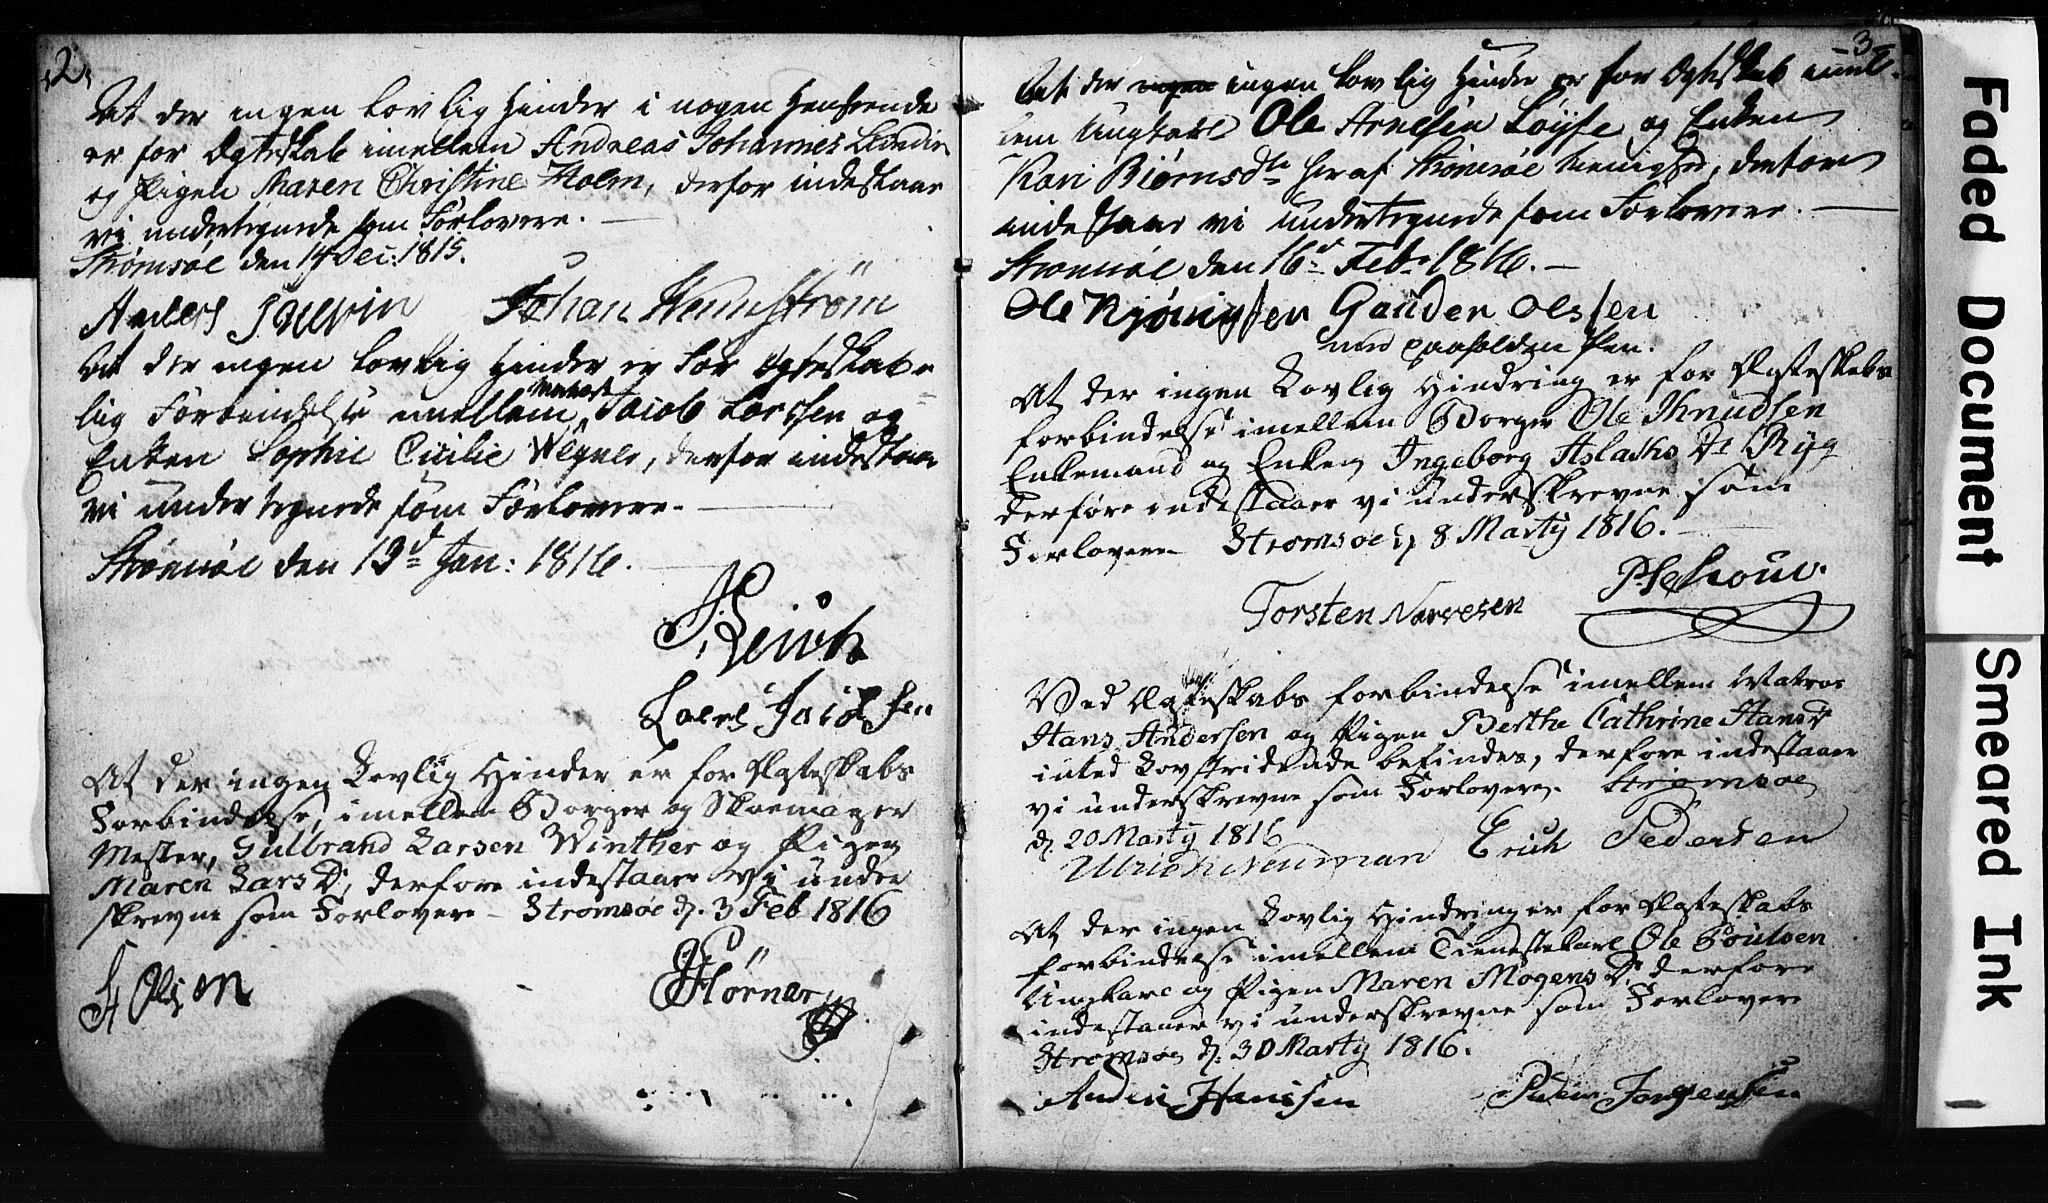 2.
At der ingen lovlig Hinder i nogen Henseende
er for Ægteskab imellem Andreas Johannes
og Pigen Maren Christine Holm, derfor indestaar
vi undertegnede som Forlovere. —
Strømsøe den 14 Dec: 1815.
Anders Johan
At der ingen lovlig Hinder er for Ægteskabe-
lig Forbindelse imellem Jacob Larssen og
Enken Sophie Cicilie Wegner, derfor indestaa
vi undertegnede som Forlovere. —
Strømsøe den 13d Jan: 1816.
Lars
At der ingen Lovlig Hinder er for Ægteskabs
Forbindelse, imellem Borger og Skoemager
Mester, Gulbrand Larsen Winther og Pigen
Maren Lars D, derfore indestaaer Vi under
skrevne som Forlovere – Strømsøe d. 3 Feb 1816
H Olsen Hörner
3
At der ingen lovlig Hinder er for Ægteskab imel-
lem Ungkarl Ole Arnesen Løyse og Enken
Kari Biørnsdtr her af Strømsøe Menighed, derfor
indestaar vi undertegnede som Forlovere. —
Strømsøe den 16d Febr 1816. —
Ole Gauden Olssen
med paaholden Pen.
At der ingen Lovlig Hindring er for Ægteskabs
forbindelse imellem Borger Ole Knudsen
Enkemand og Enken Ingeborg Aslaks Dr Ryg
derføre indestaaer vi underskrevne som
Forlovere Strømsøe d 8 Marty 1816. —
Torsten Narvesen
Ved Ægteskabs forbindelse imellem Matros
Hans Andersen og Pigen Berthe Cathrine Hans Dr
inted Lovstridende befindes, derfore indestaaer
vi underskrevne som Forlovere. Strømsøe
d. 20 Marty 1816
Ulrich Neuman Erich Pedersen
At der ingen Lovlig Hindring er for Ægteskabs
forbindelse imellem Tienestekarl Ole Poulsen
Ungkarl og Pigen Maren Mogens Dr derfore
indestaaer vi underskrevne som Forlovere
Strømsøe d. 30 Marty 1816.
Hanssen Peder Jørgensen
Faded Document
Smeared Ink